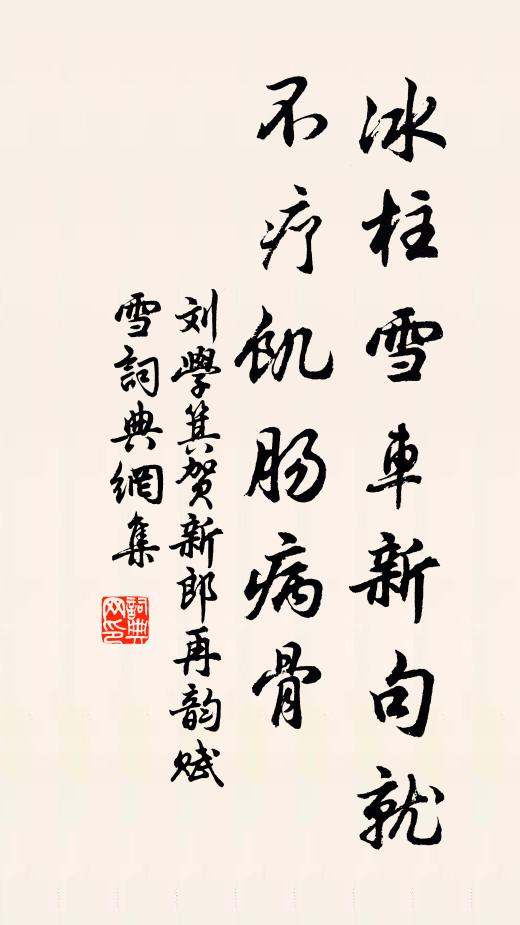 冰柱雪車新句就
不疗飢肠病骨
刘學箕贺新郎再韵赋
雪詞典網集
詞典
网印